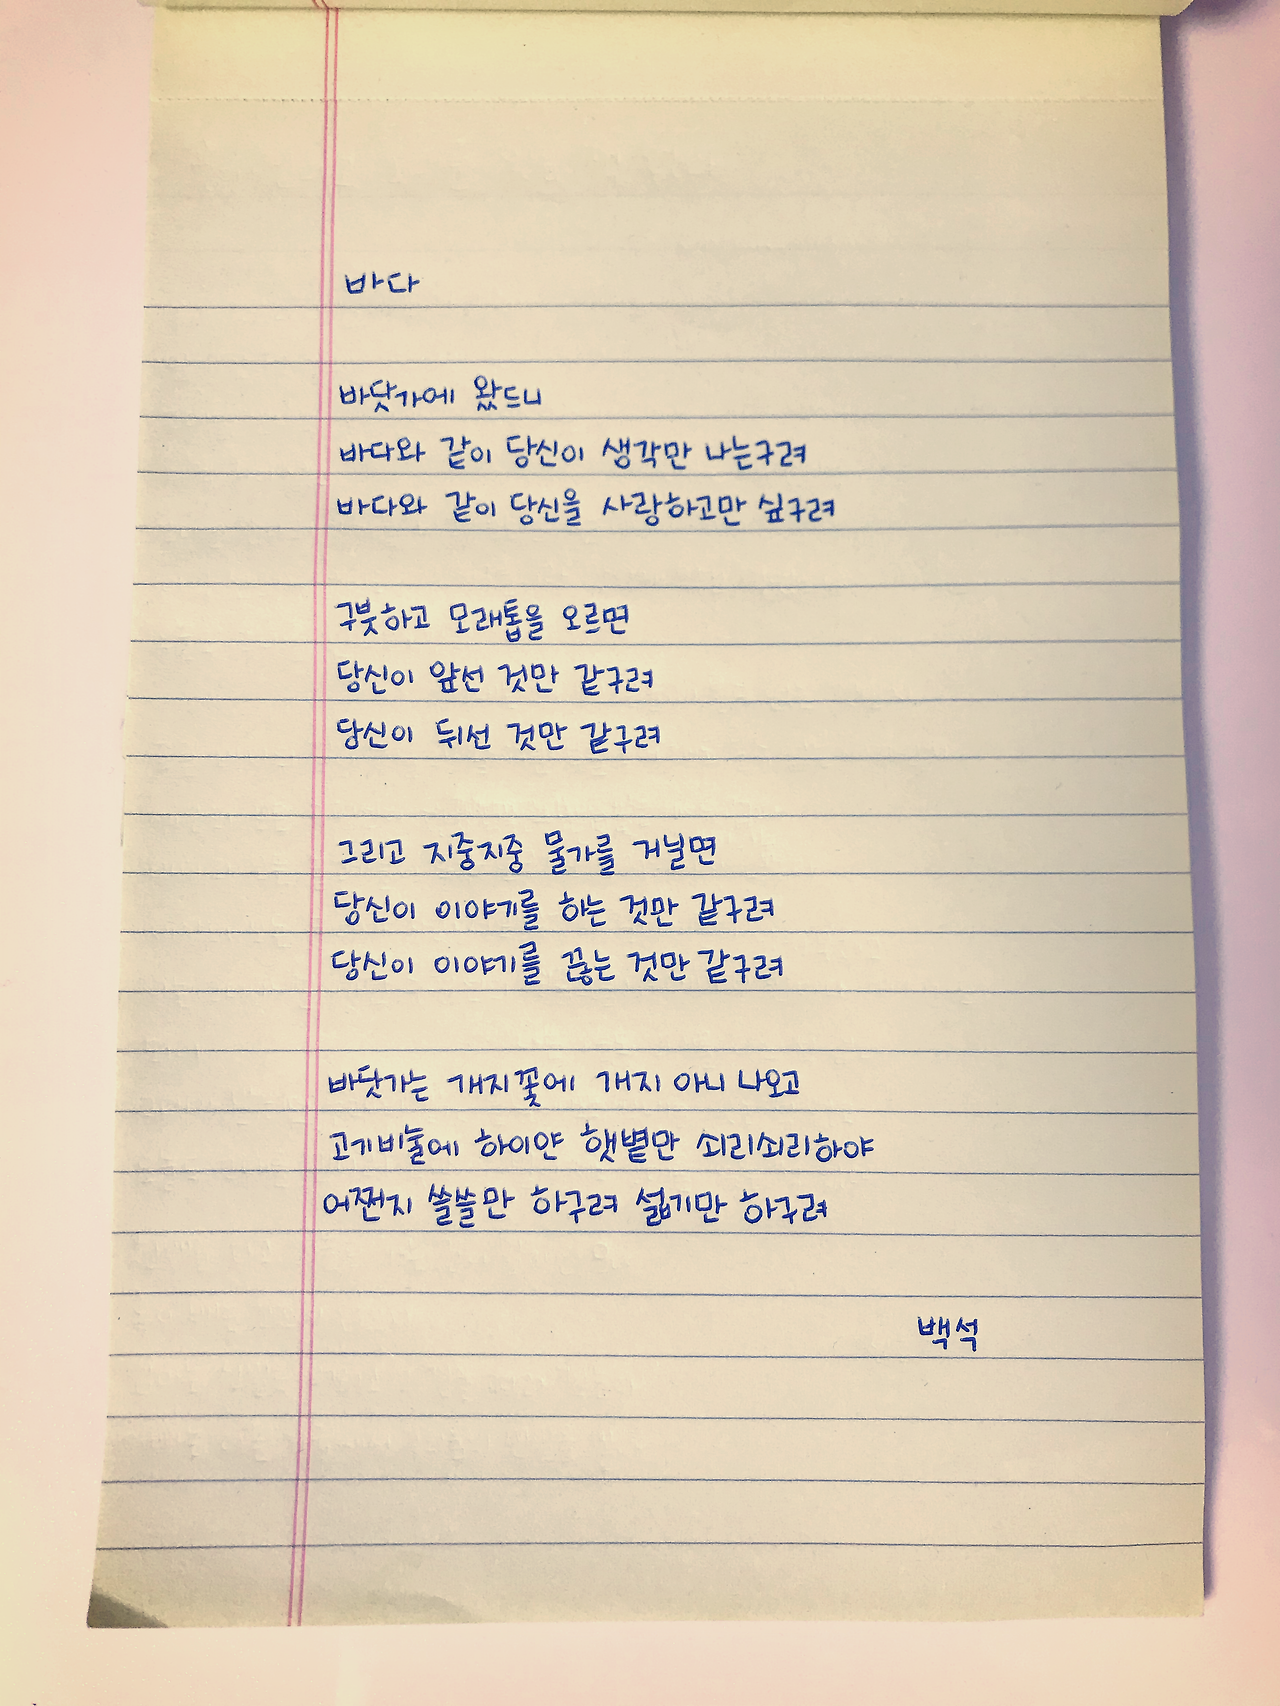 바다
바닷가에 왔드니
바다와 같이 당신이 생각만 나는구려
바다와 같이 당신을 사랑하고만 싶구려
구붓하고 모래톱을 오르면
당신이 앞선 것만 같구려
당신이 뒤선 것만 같구려
그리고 지중지중 물가를 거닐면
당신이 이야기를 하는 것만 같구려
당신이 이야기를 끊는 것만 같구려
바닷가는 개지꽃에 개지 아니 나오고
고기비눌에 하이얀 햇볕만 쇠리쇠리하야
어쩐지 쓸쓸만 하구려 섧기만 하구려
백석